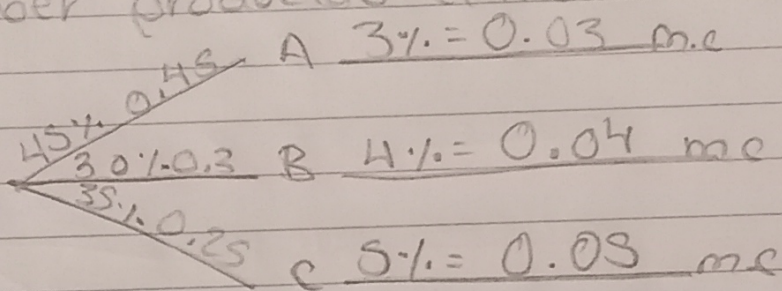 45% 0.45 A 3% = 0.03 m.c
30% 0.3 B 4% = 0.04 mc
35% 0.25 C 5% = 0.05 mc